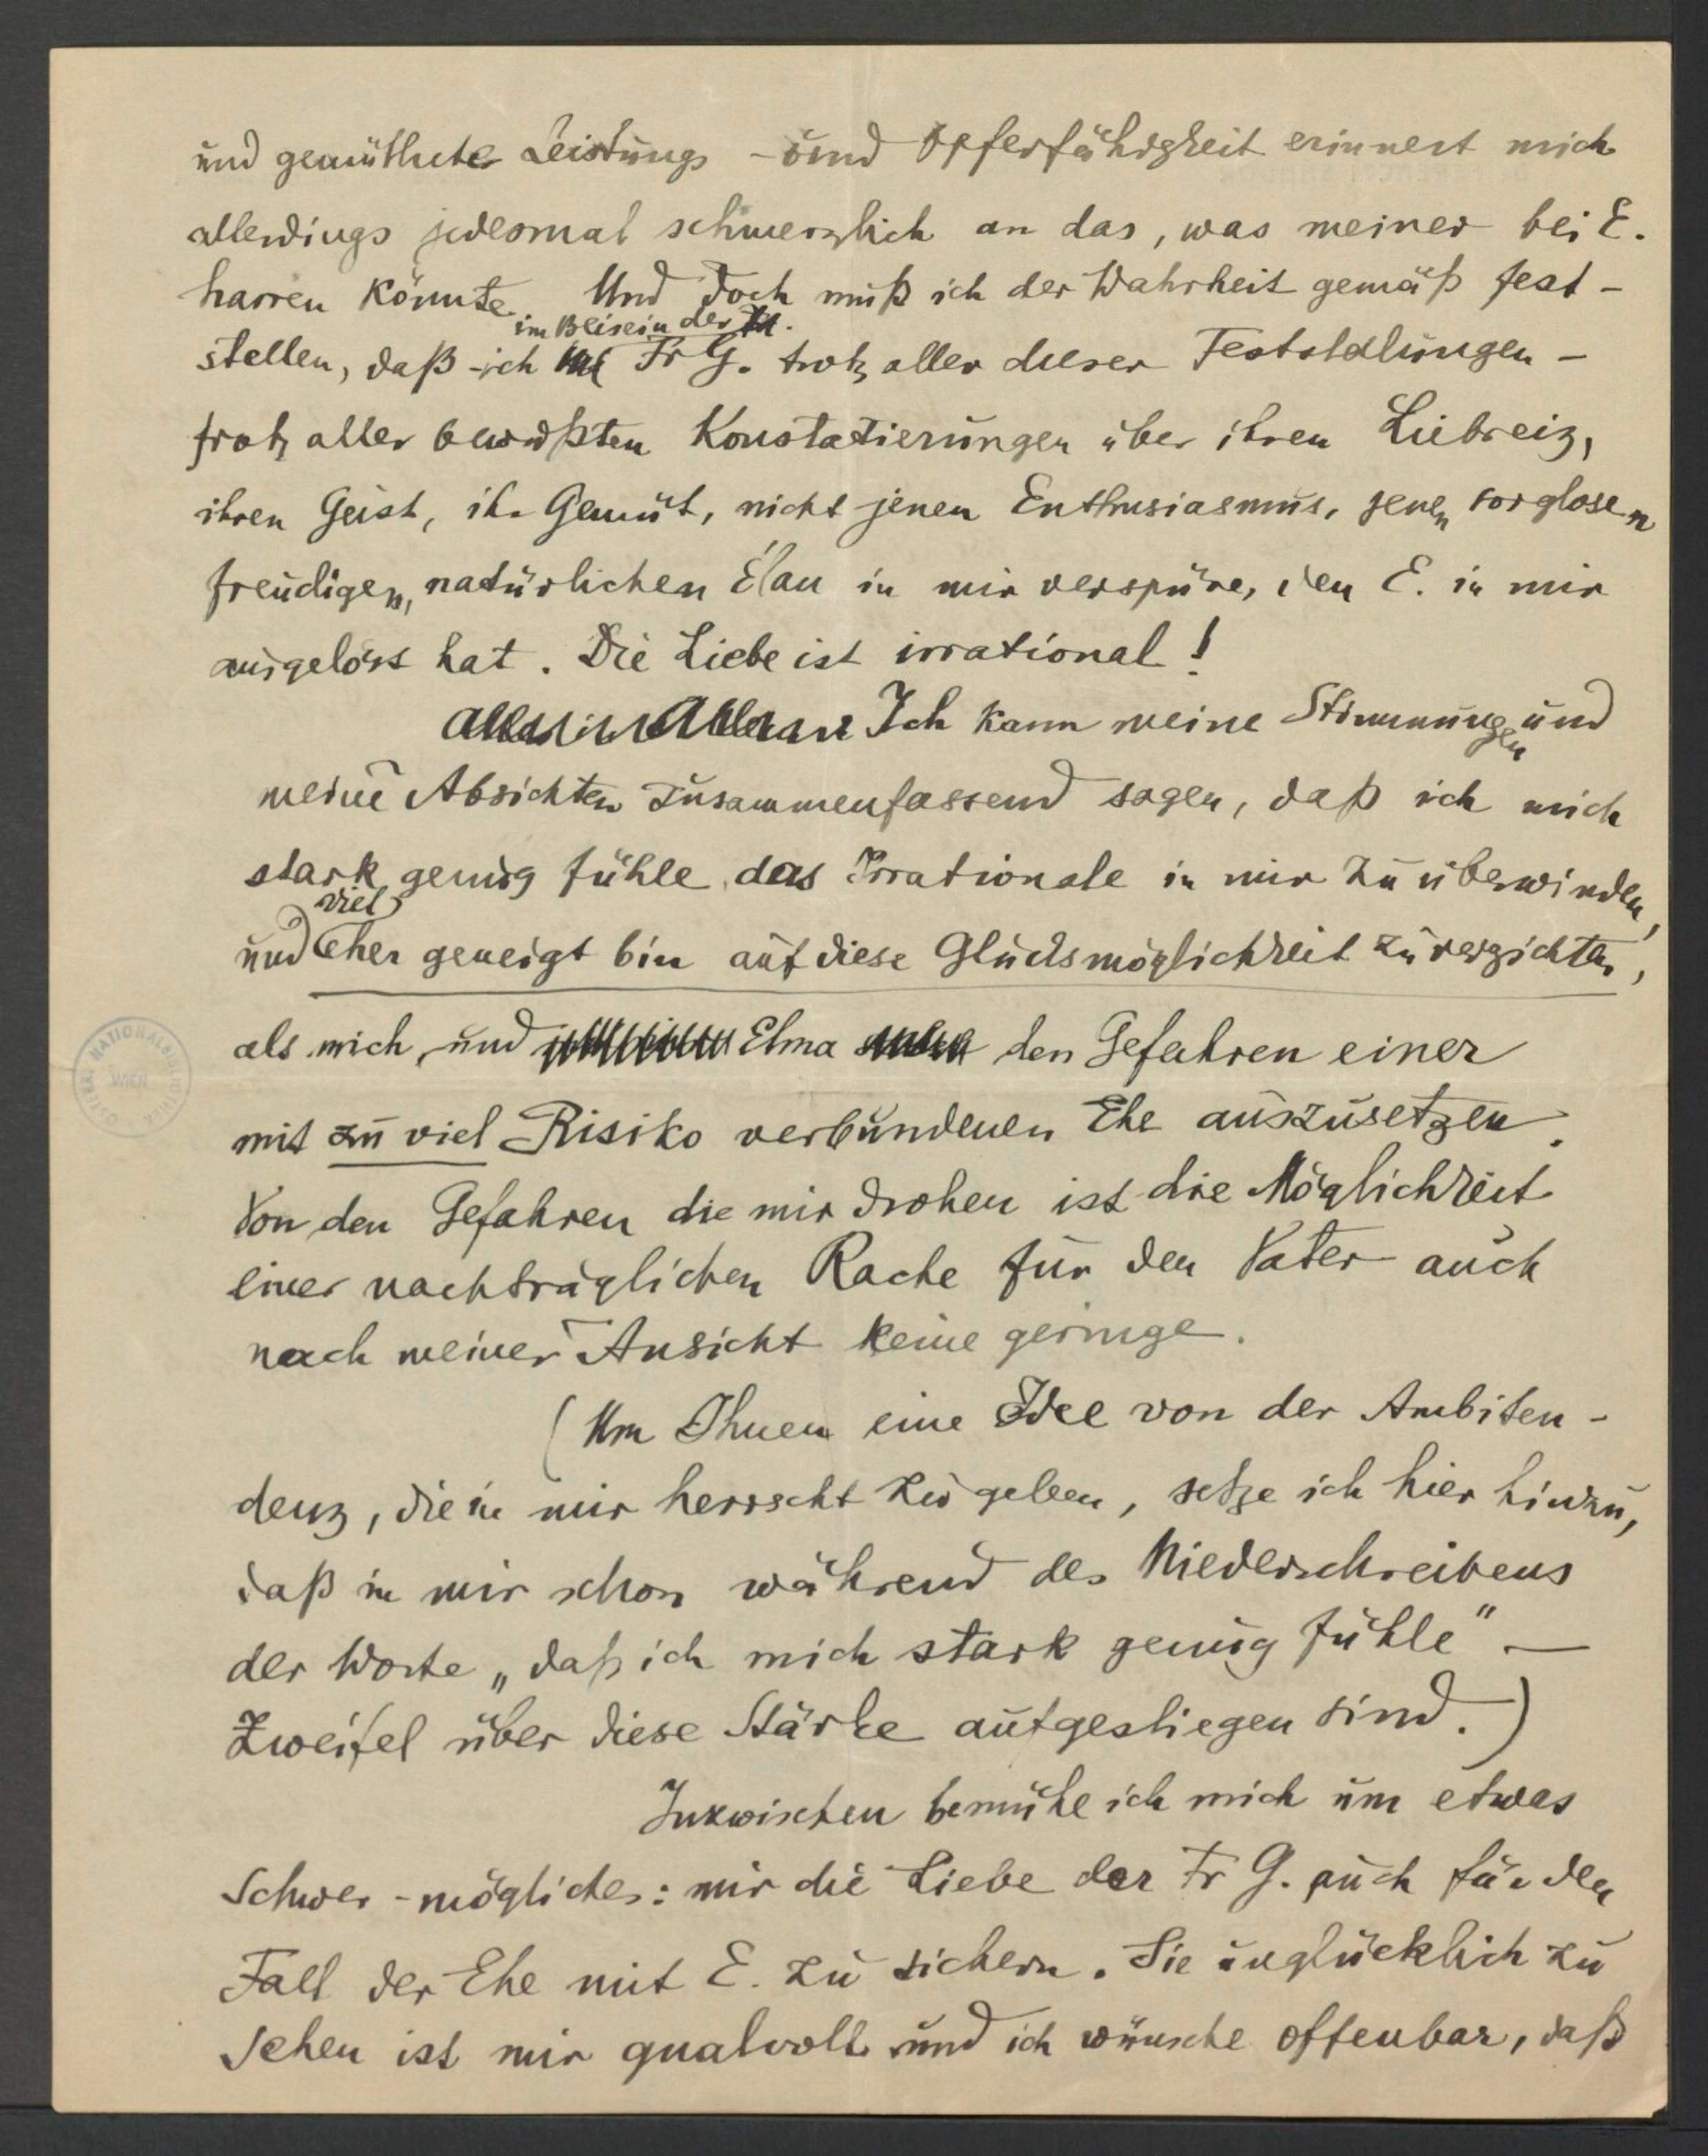 und gemüthliche Leistungs - und Opferfähigkeit erinnert mich
allerdings jedesmal schmerzlich an das, was meiner bei E.
harren könnte. Und doch muß ich der Wahrheit gemäß fest-
im Beisein der
stellen, daß ich Fr G. trotz aller dieser Feststellungen -
trotz aller bewußten Konstatierungen über ihren Liebreiz,
ihren Geist, ihr Gemüt, nicht jenen Enthusiasmus, jenen sorglosen
freudigen, natürlichen Élan in mir verspüre, den E. in mir
ausgelöst hat. Die Liebe ist irrational!
Ich kann meine Stimmungen und
meine Absichten zusammenfassend sagen, daß ich mich
stark genug fühle, das Irrationale in mir zu überwinden,
viel
und eher geneigt bin auf diese Glücksmöglichkeit zu verzichten,
als mich, und Elma den Gefahren einer
mit zu viel Risiko verbundenen Ehe auszusetzen.
Von den Gefahren die mir drohen ist die Möglichkeit
einer nachträglichen Rache für den Vater auch
nach meiner Ansicht keine geringe.
(Um Ihnen eine Idee von der Ambiten-
denz, die in mir herrscht zu geben, setze ich hier hinzu,
daß in mir schon während des Niederschreibens
der Worte „daß ich mich stark genug fühle" —
Zweifel über diese Stärke aufgestiegen sind.)
Inzwischen bemühe ich mich um etwas
Schwer-mögliches: mir die Liebe der Fr G. auch für den
Fall der Ehe mit E. zu sichern. Sie unglücklich zu
sehen ist mir qualvoll und ich wünsche offenbar, daß
ÖSTERR. NATIONALBIBLIOTHEK
WIEN